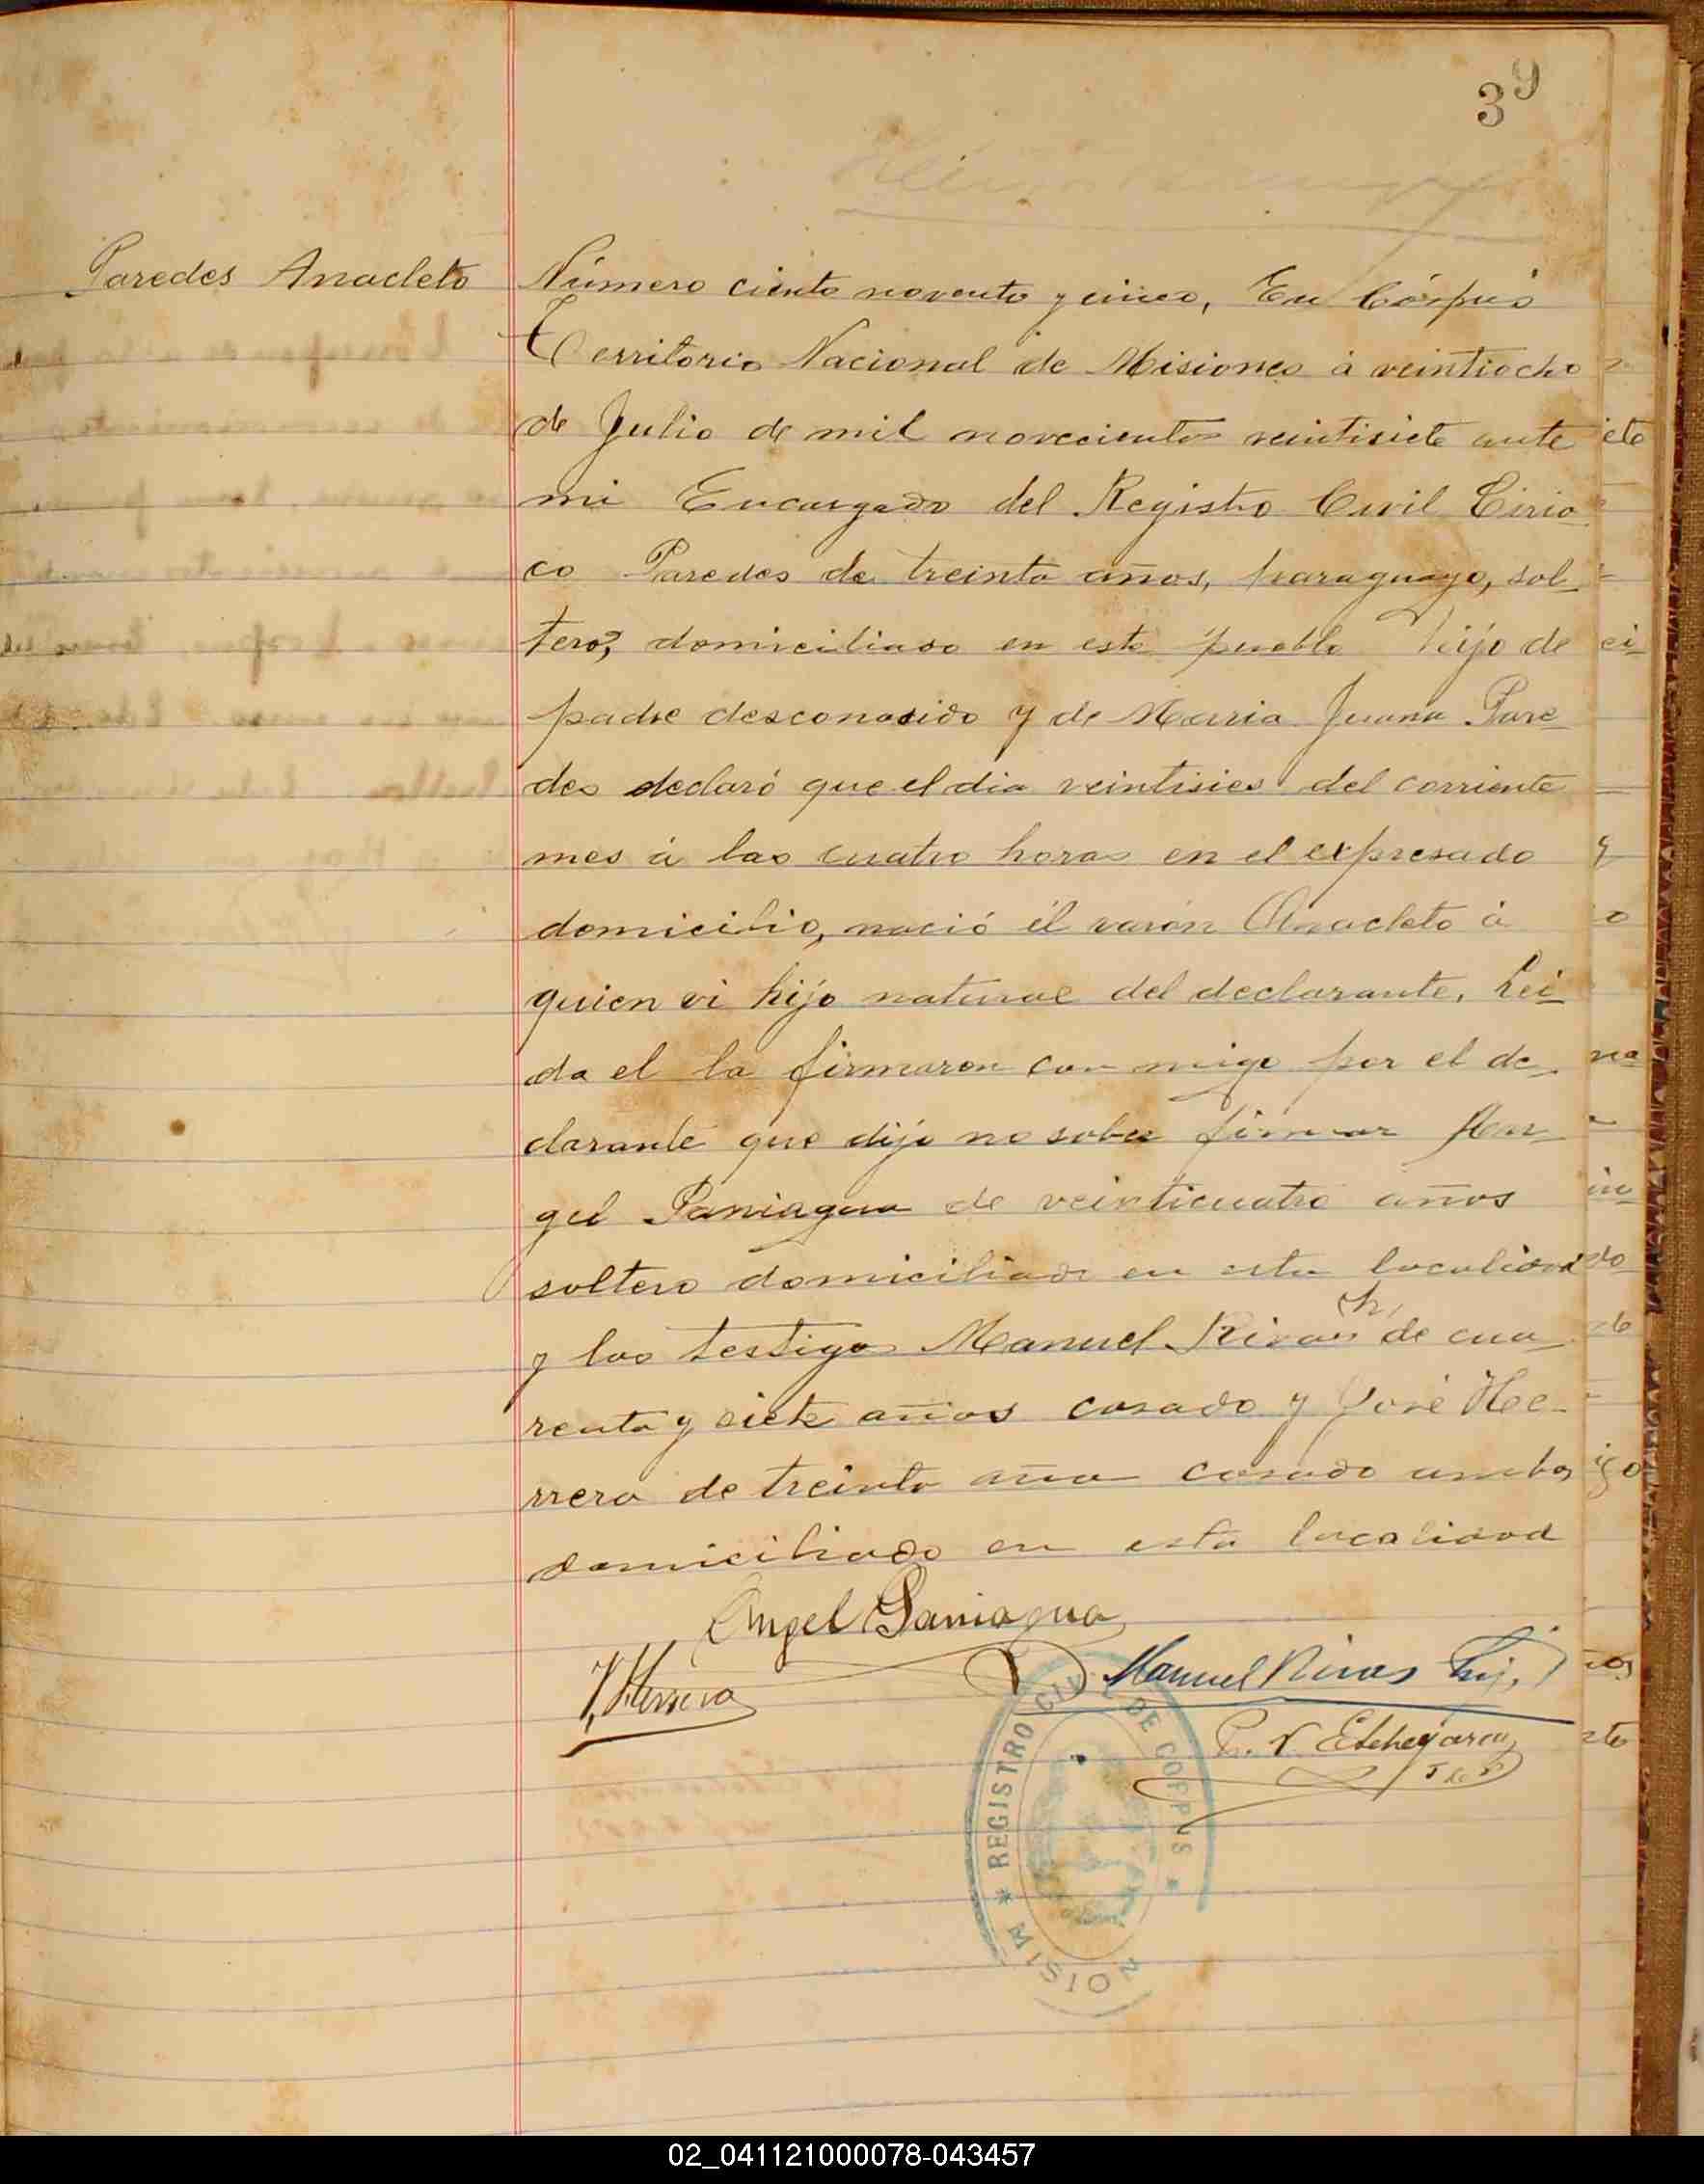 39
Paredes Anacleto
Número ciento noventa y cinco, En Córpus
Territorio Nacional de Misiones á veintiocho
de Julio de mil novecientos veintisiete ante
mi Encargado del Registro Civil Ciria
co Paredes de treinta años, paraguayo, sol
tero, domiciliado en este pueblo hijo de
padre desconosido y de Maria Juana Pare
des declaró que el dia veintisies del corriente
mes á las cuatro horas en el expresado
domicilio, nació él varón Anacleto á
quien vi hijo natural del declarante. Lei
da el la firmaron con migo por el de
clarante que dijo no saber firmar An
gel Paniagua de veinticuatro años
soltero domiciliado en esta localidad
y los testigos Manuel Rivas (h) de cua
renta y siete años casado y José He
rrera de treinta años casado ambos
domiciliado en esta localidad
Angel Paniagua
J. Herrera
Manuel Rivas hij.
P. V. Etchegaray
REGISTRO CIVIL DE CORPUS
MISION
02_041121000078-043457